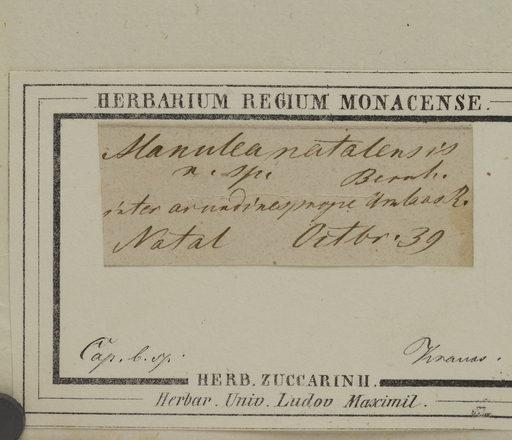 HERBARIUM REGIUM MONACENSE.
Manulea natalensis
n. sp. Bernh.
inter arundines prope Umlaas R.
Natal Octbr. 39
Cap. b. sp. Krauss.
HERB. ZUCCARINII.
Herbar. Univ. Ludov Maximil.